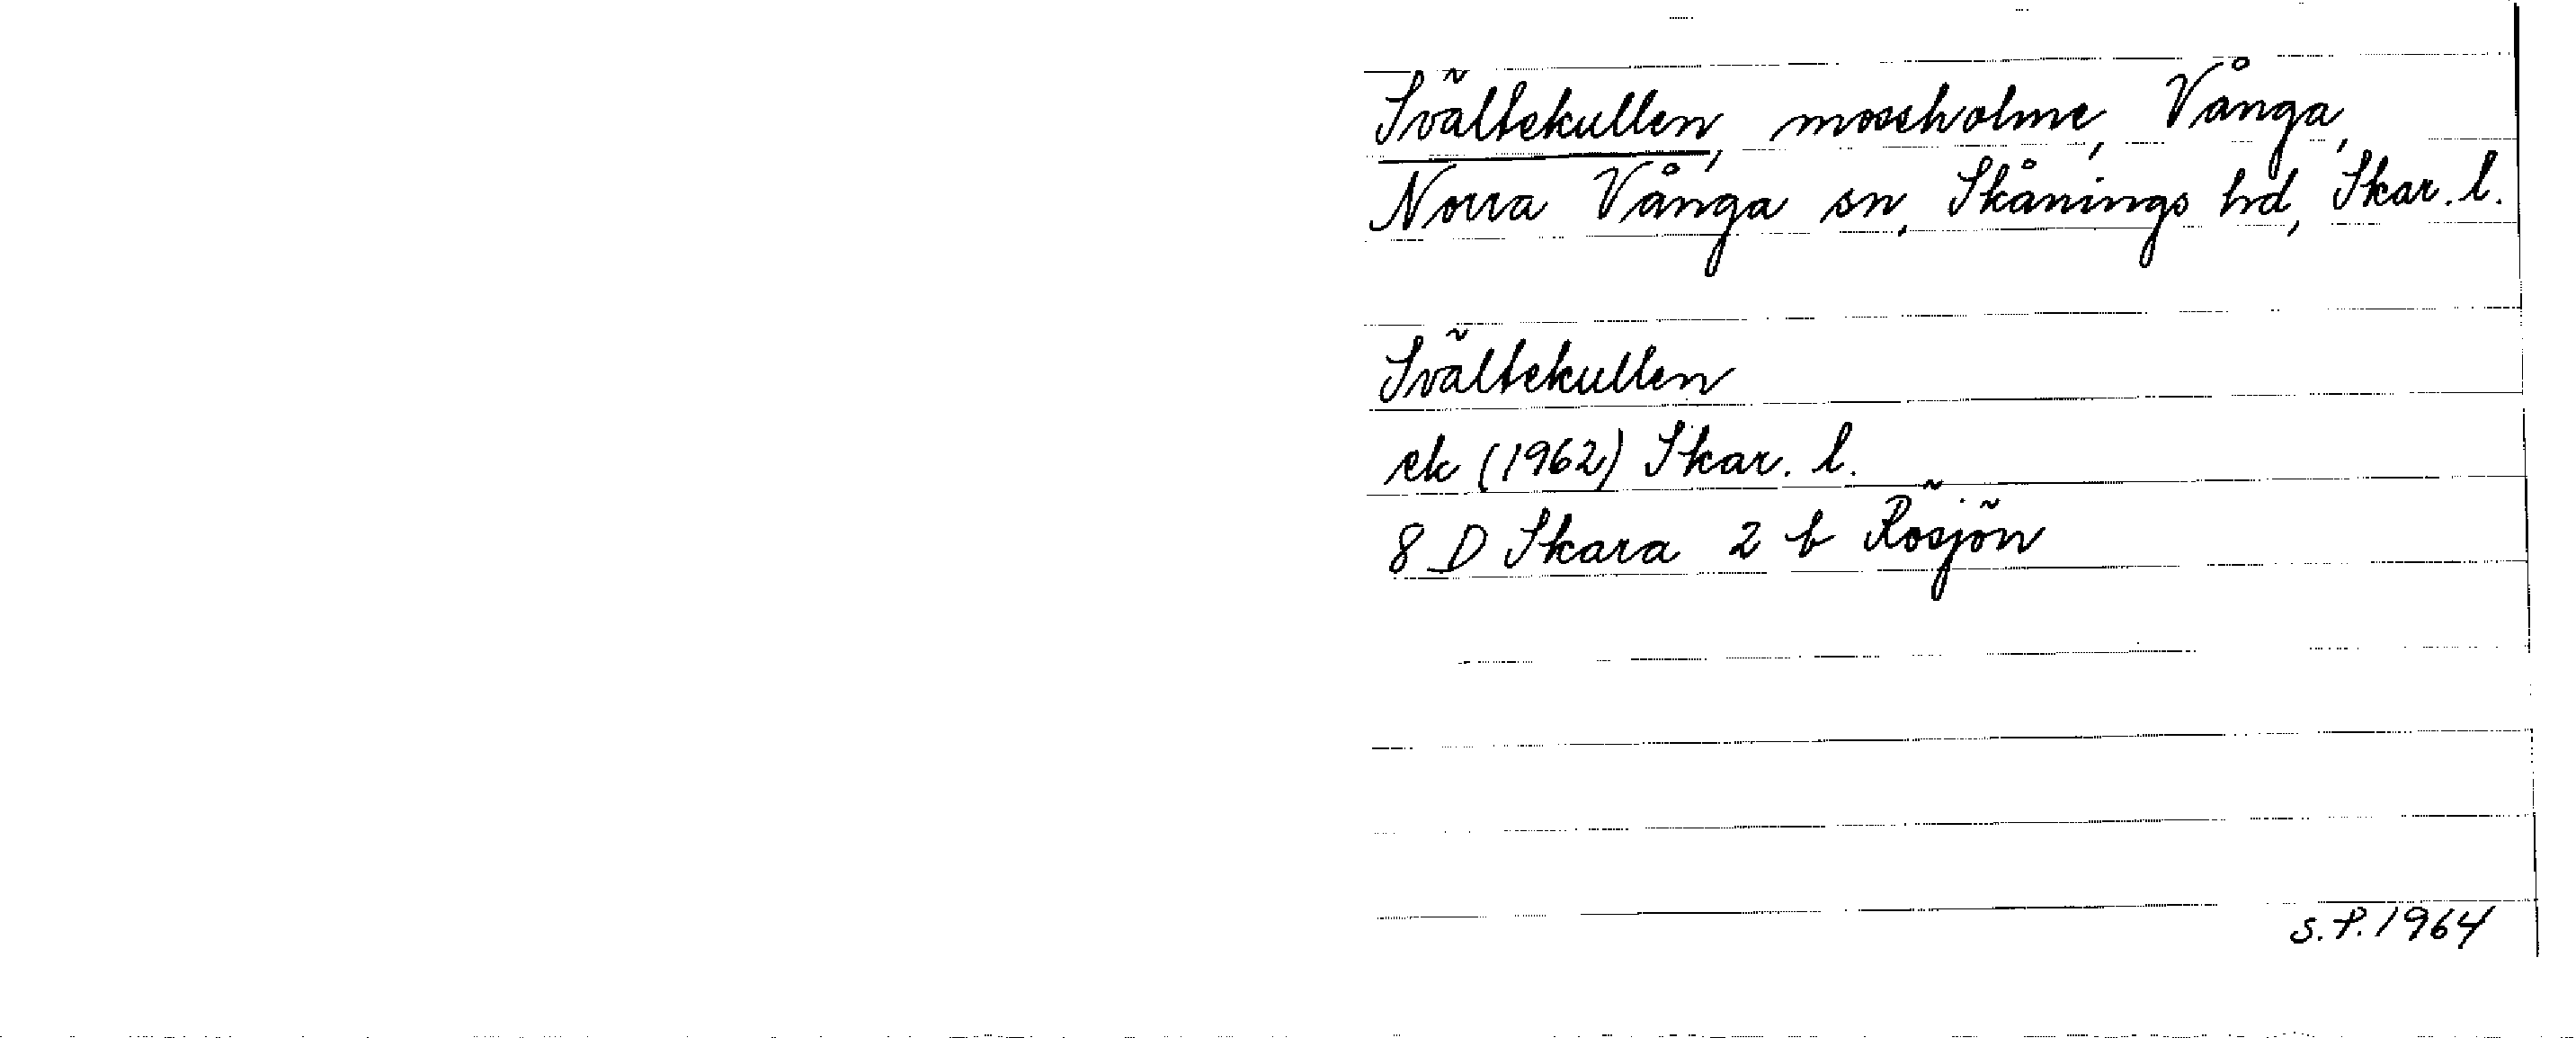 Svältekullen, mosseholme, Vånga,
Norra Vånga sn, Skånings hd, Skar. l.
Svältekullen
ek (1962) Skar. l.
8 D Skara 2 b Rösjön
S.P. 1964